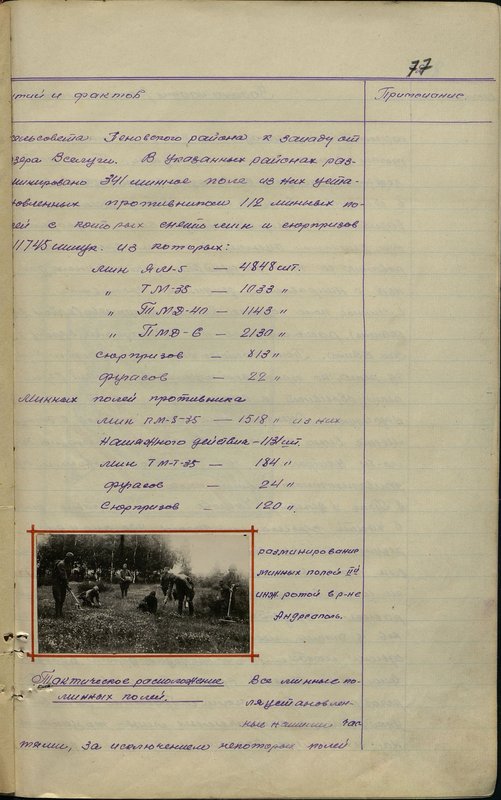 77
тий и фактов
Примечание.
сельсовета Пеновского района к западу от
зера Вселуги. В указанных районах раз-
минировано 341 минное поле из них уста-
новленных противником 112 минных по-
лей с которых снято мин и сюрпризов
11745 штук. из которых:
мин ЯМ-5 — 4848 шт.
„ ТМ-35 — 1033 „
„ ПМД-40 — 1143 „
„ ПМД-6 — 2130 „
сюрпризов — 813 „
фугасов — 22 „
Минных полей противника
мин ПМ-S-35 — 1518 „ из них
натяжного действия — 1131 шт.
мин ТМ-Т-35 — 184 „
фугасов — 24 „
Сюрпризов — 120 „
разминирование
минных полей
инж. ротой в р-не
Андреаполь.
Тактическое расположение
минных полей.
Все минные по-
ля установлен-
ные нашими час
тями, за исключением некоторых полей